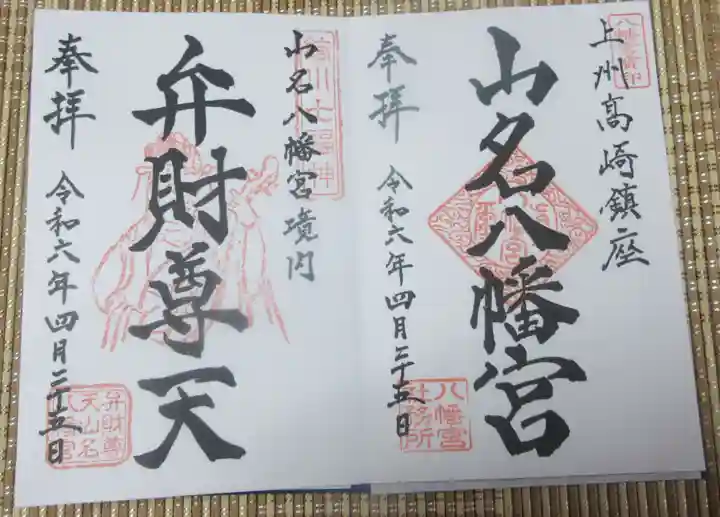 上州高崎鎮座
山名八幡宮
奉拝
令和六年四月二十五日
八幡宮
社務所
山名八幡宮境内
弁財尊天
奉拝
令和六年四月二十五日
弁財尊
天山名
八幡宮